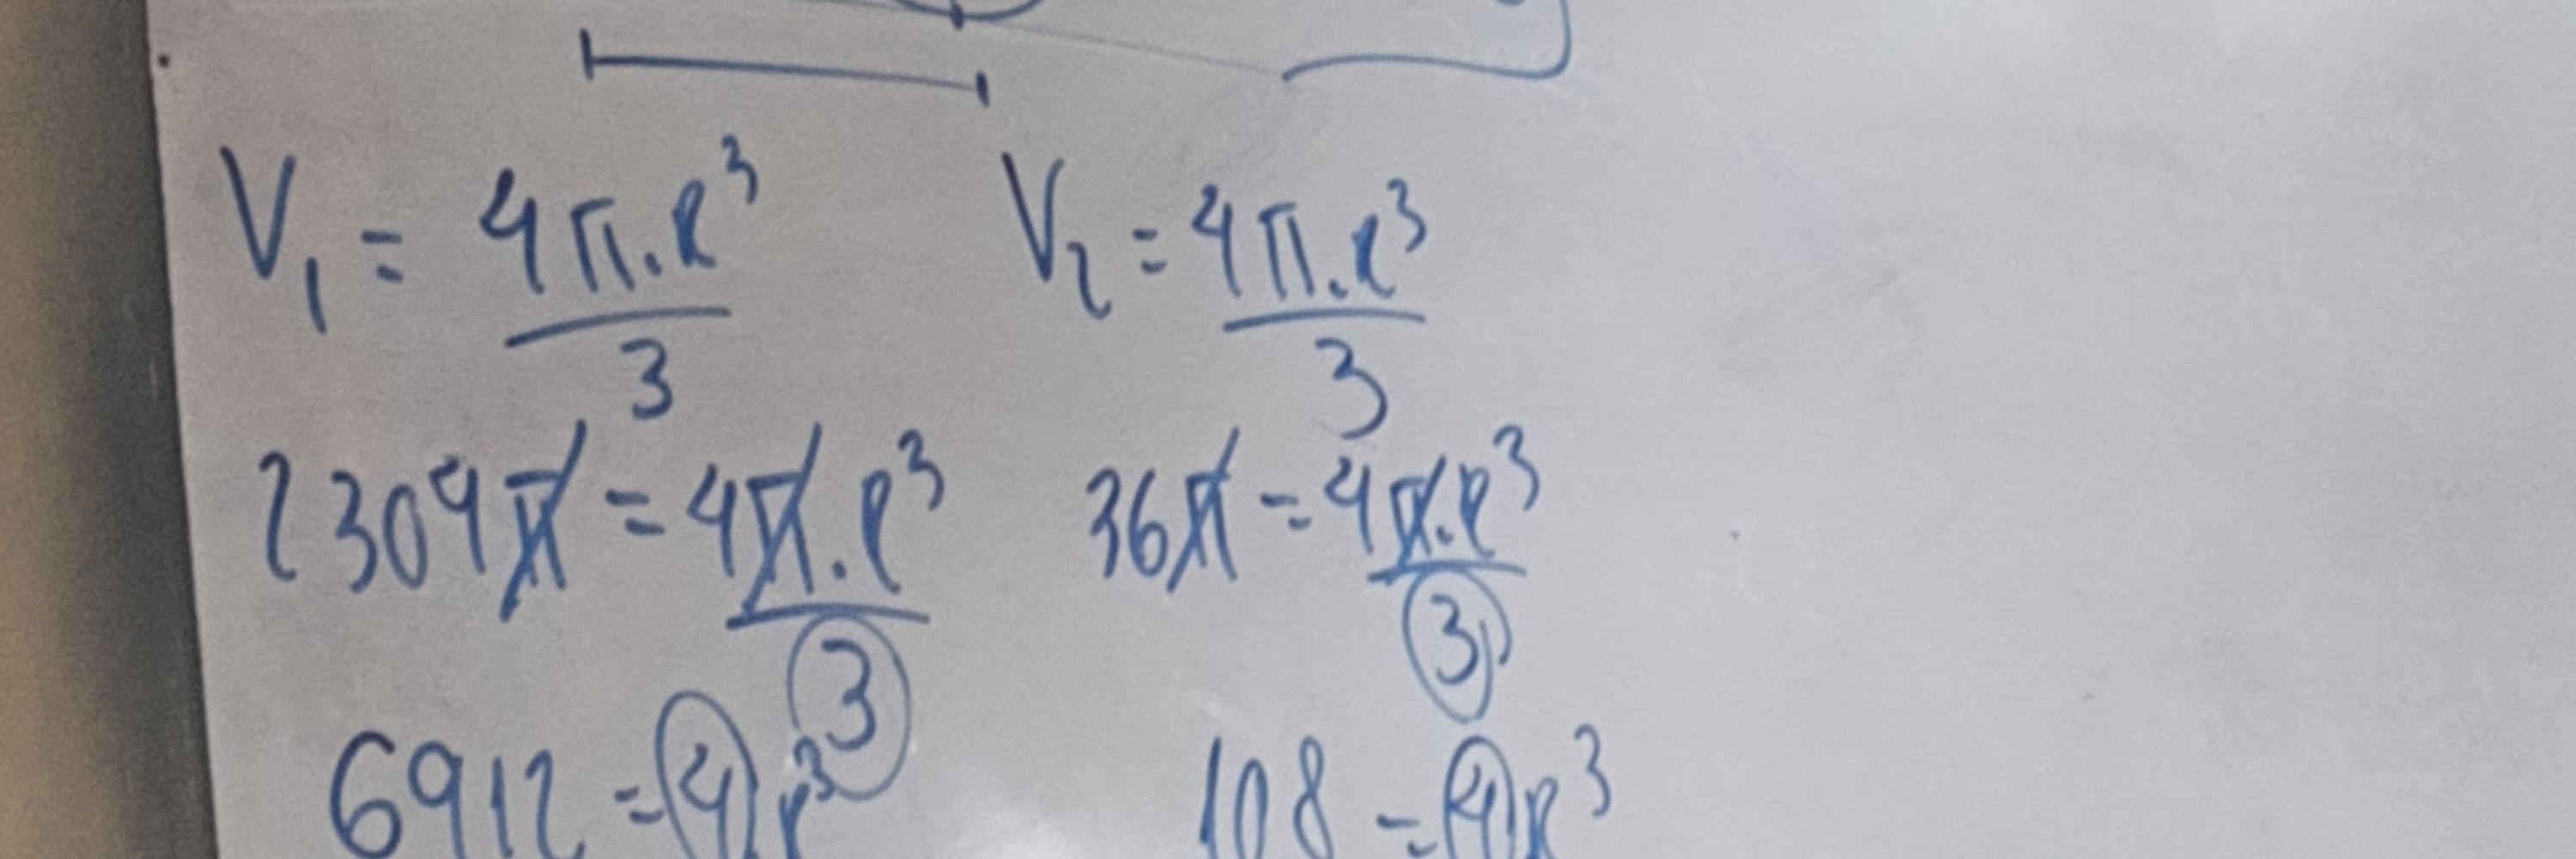 V₁ = 4π.R³/3 V₂ = 4π.R³/3
2304π = 4π.R³/3 36π = 4π.R³/3
6912 = 4R³ 108 = 4R³